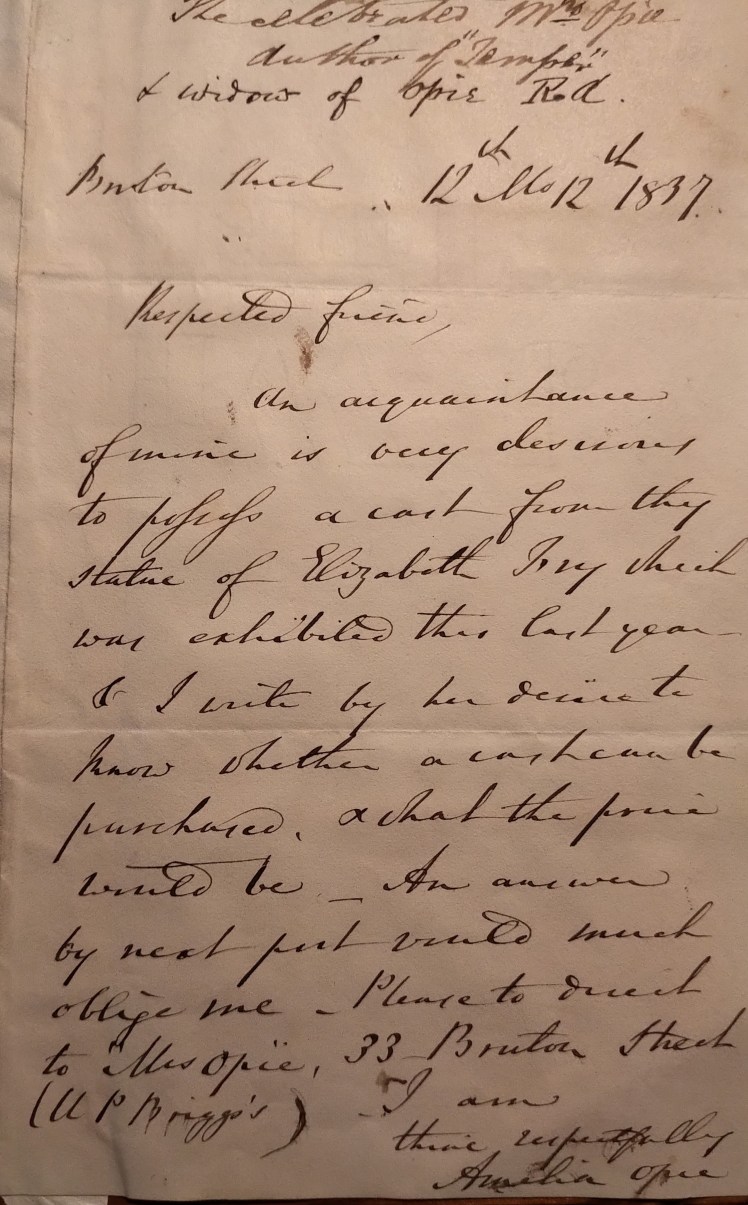 The celebrated Mrs Opie
author of "Temper"
& widow of Opie R.A.
Bruton Street 12th Mo 12th 1837.
Respected friend,
An acquaintance
of mine is very desirous
to possess a cast from thy
statue of Elizabeth Fry which
was exhibited this last year
& I write by her desire to
know whether a cast can be
purchased, & what the price
would be _ An answer
by next post would much
oblige me _ Please to direct
to Mrs Opie, 33 Bruton Street
(H P Briggs's) I am
thine respectfully
Amelia Opie